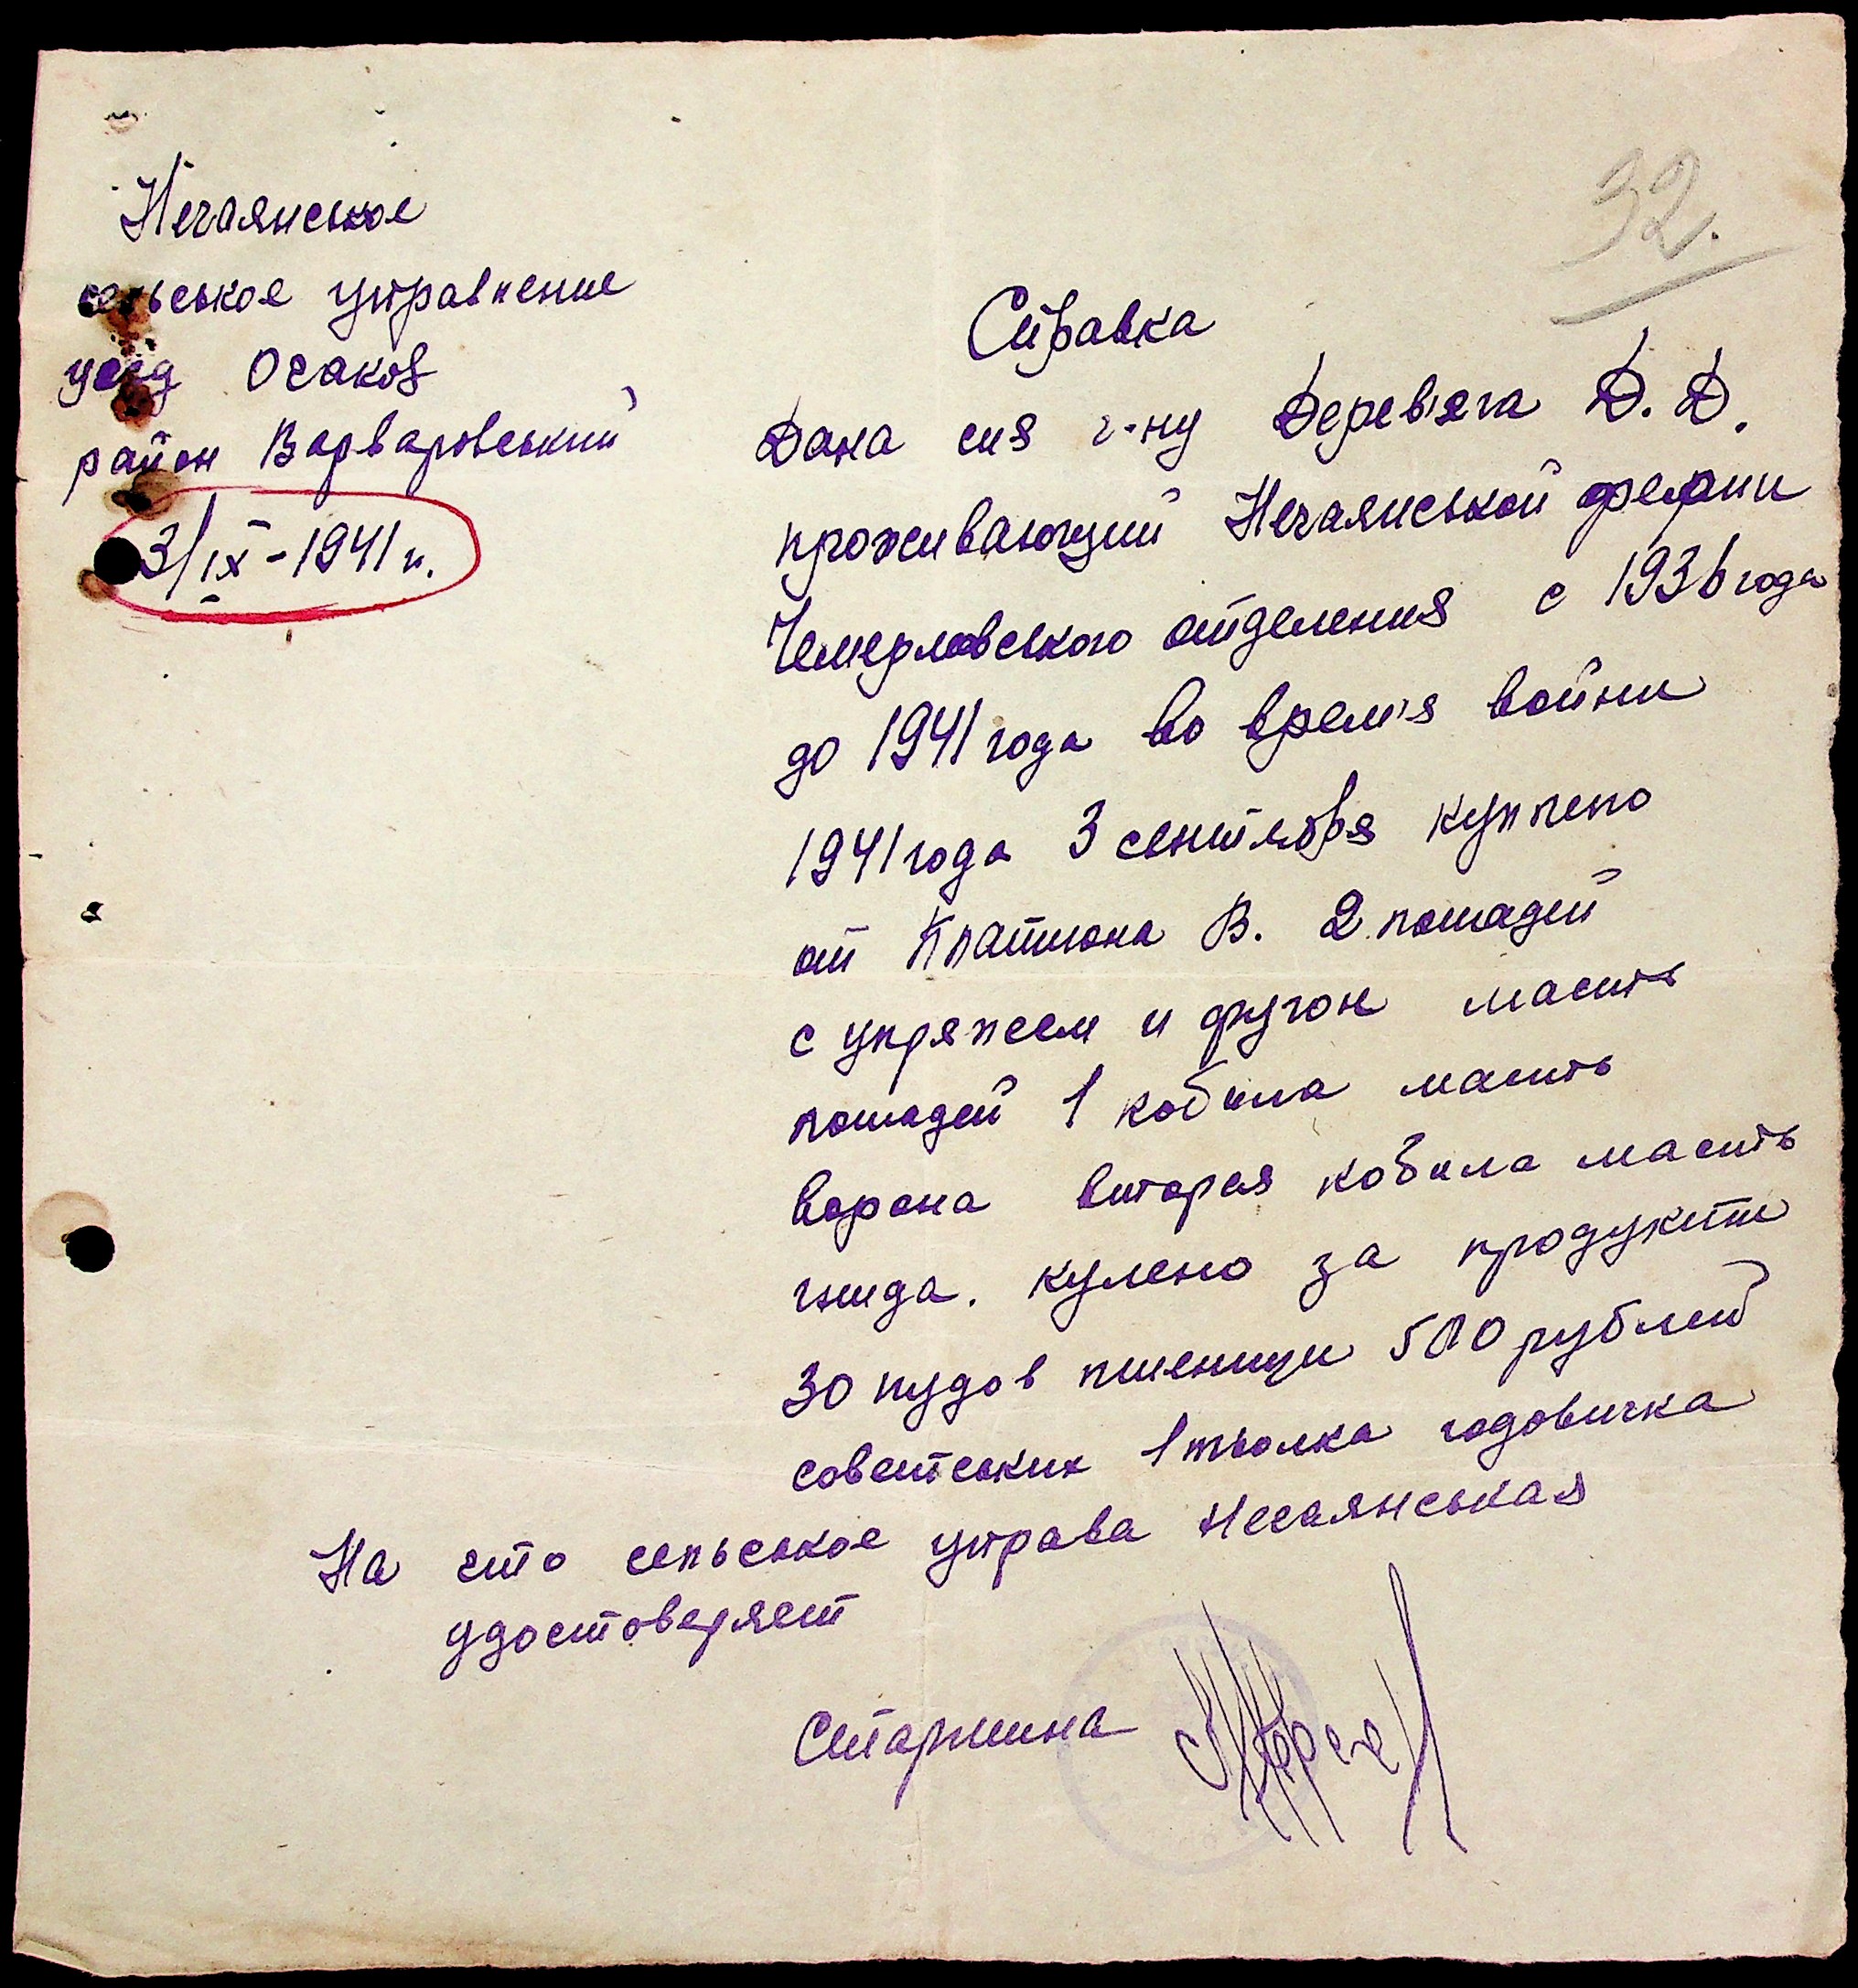 Нечаянськое
сельськое управление
уезд Очаков
район Варваровський
3/IX-1941 г.
32.
Справка
Дана сия г-ну Дерев'яга Д. Д.
проживающий Нечаянськой ферми
Чемерловського отделения с 1936 года
до 1941 года во врем'я войни
1941 года 3 сентября куплено
от Платмона В. 2 лошадей
с упряжем и фургон масть
лошадей 1 кобила масть
ворона вторая кобила масть
гнида. кулено за продукти
30 пудов пшеници 500 рублей
советських 1 тьолка годовичка
На что сельськое управа Нечаянськая
удостоверяет
Старшина